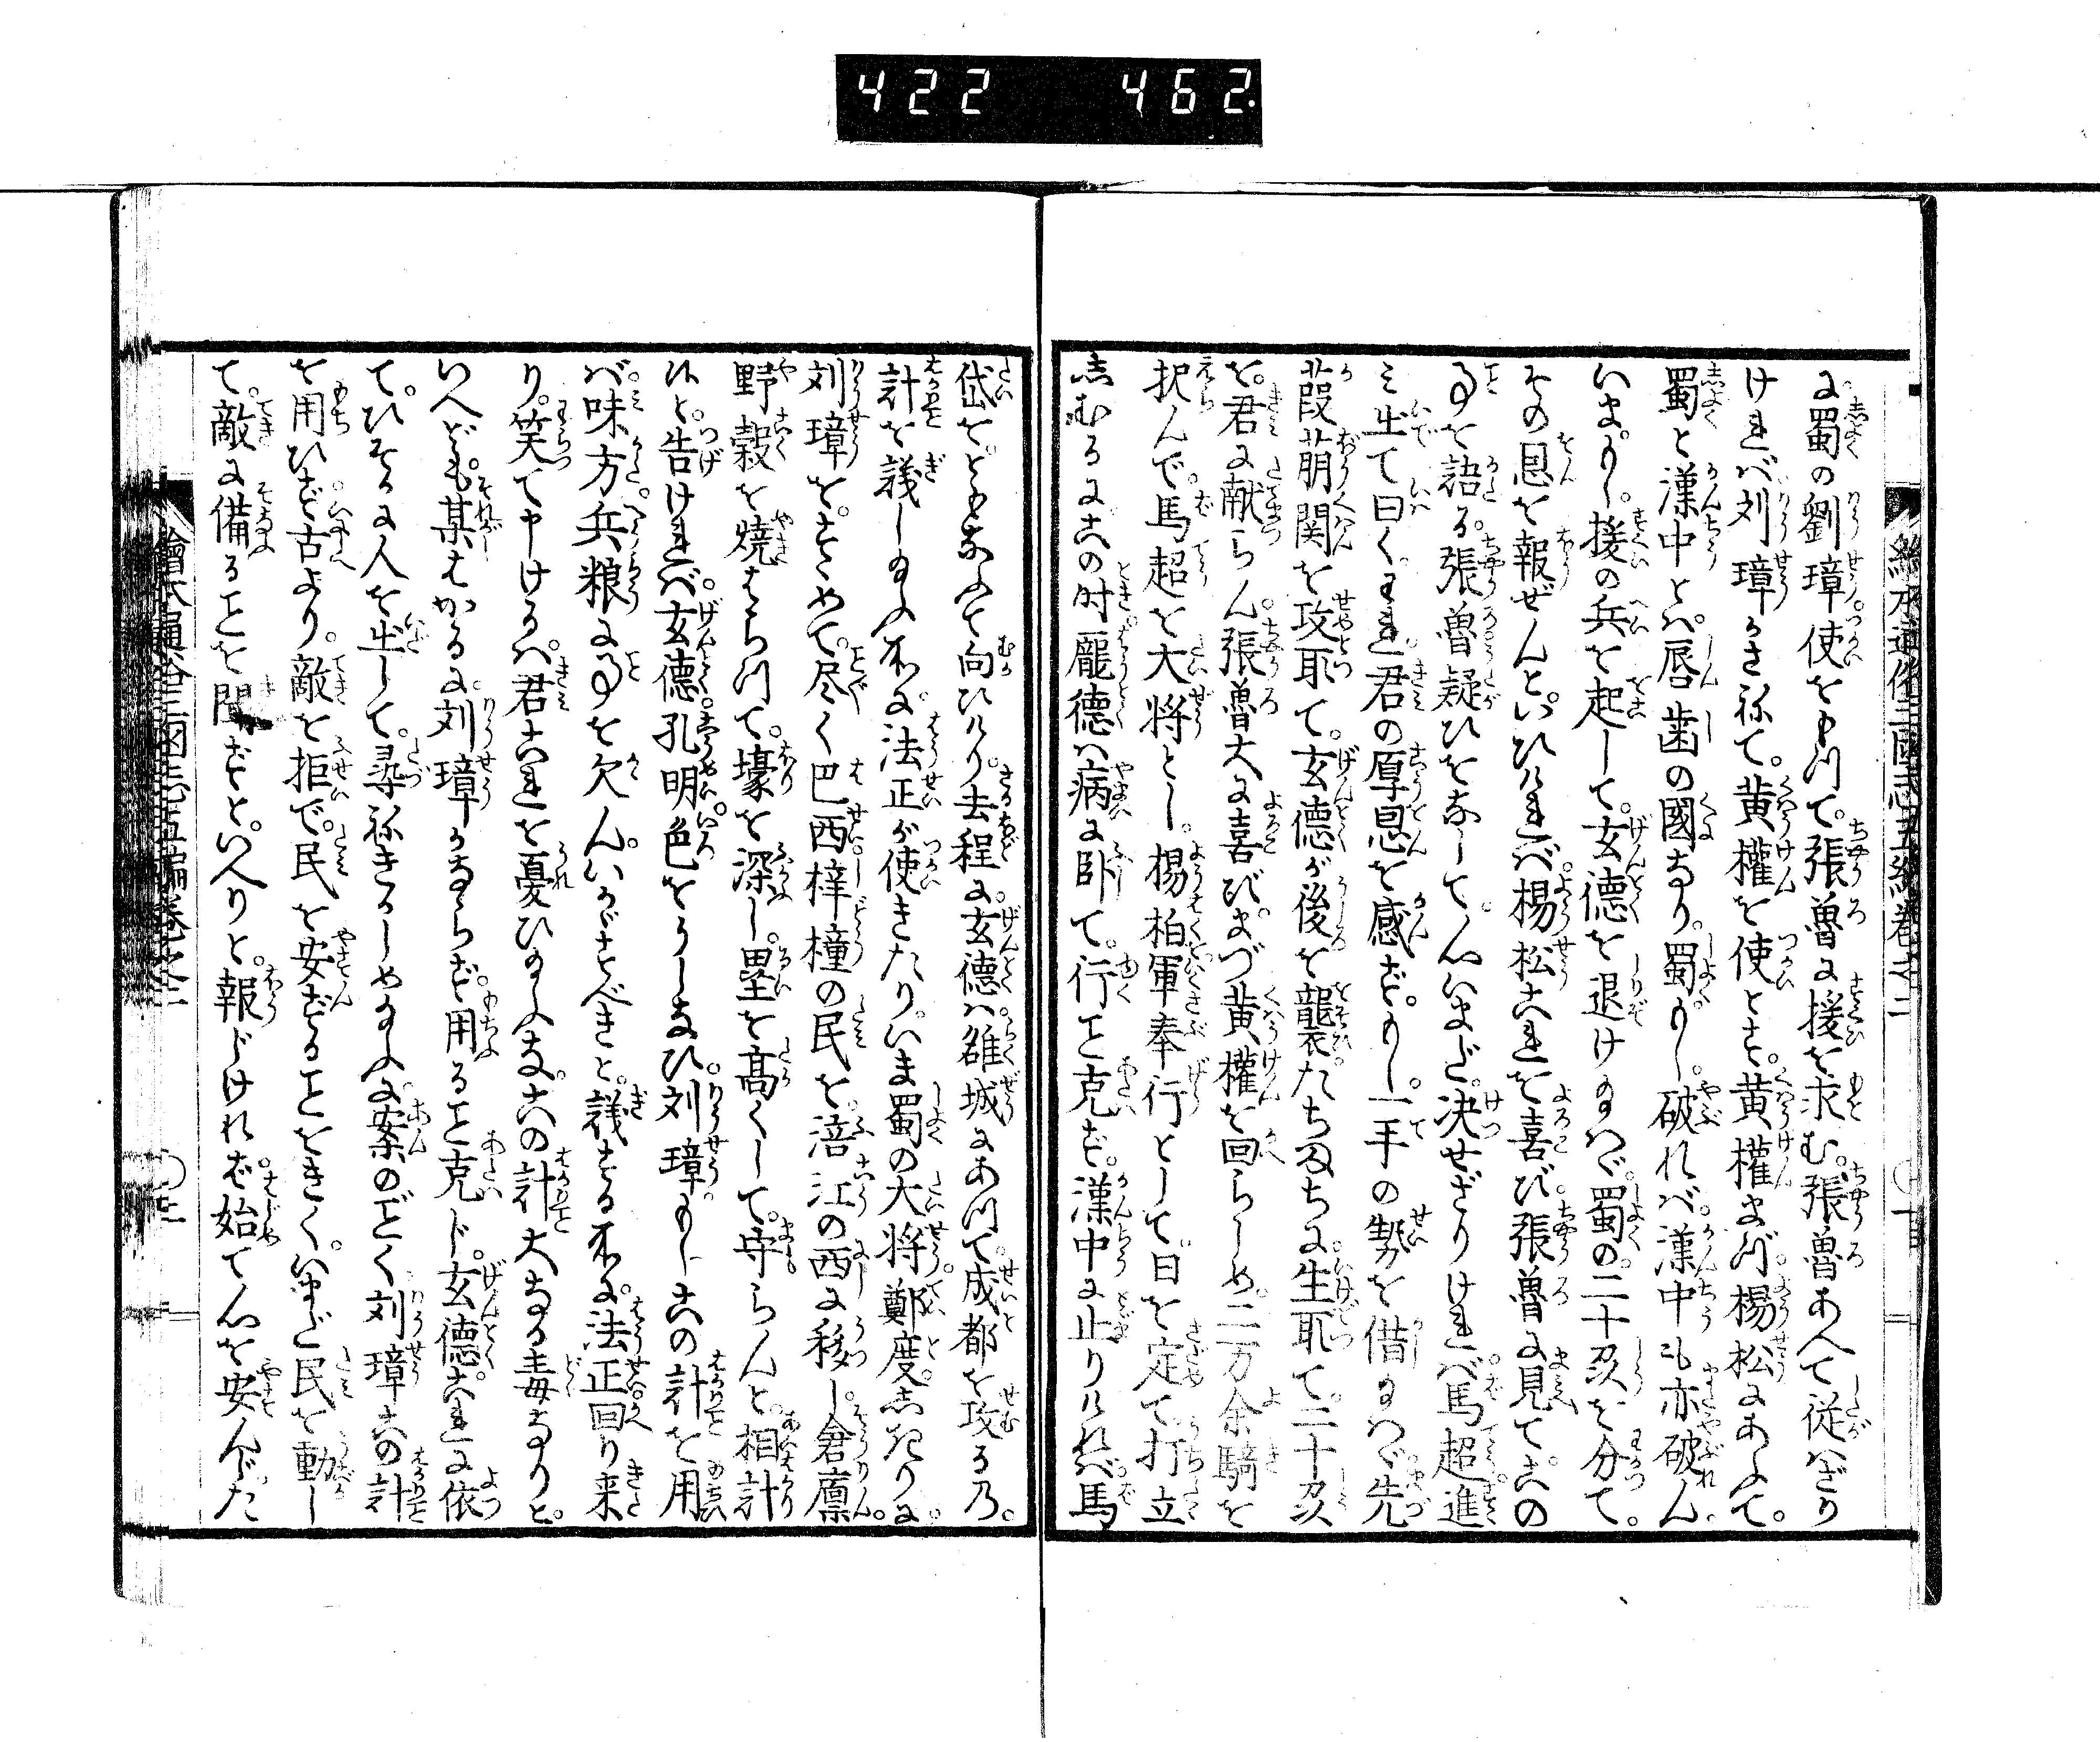 422 462.
繪本通俗三國志五編卷之二
に蜀の劉璋使をもつて。張魯に援を求む。張魯あへて従はざり
ければ刘璋かさねて。黄權を使とす。黄權まづ楊松にあふて。
蜀と漢中とは唇歯の國なり。蜀もし破れば。漢中も亦破ん
いまもし。援の兵を起して。玄德を退け給はゞ。蜀の二十刄を分て。
その恩を報ぜんと。いひければ。楊松これを喜び。張魯に見て。この
事を語る。張魯疑ひをなして。心いまだ。決せざりければ。馬超進
み出て曰く。われ君の厚恩を感ず。もし一手の勢を借給はゞ。先
葭萌関を攻取て。玄德が後を襲。たちまちに。生取て。二十刄
を。君に献らん。張魯大に喜び。まづ黄權を回らしめ。二万余騎を
択んで。馬超を大将とし。楊柏軍奉行として。日を定て打立
しむるに。この时。龐德は病に卧て。行こと克ず。漢中に止りければ。馬
岱を。ともなふて向ひけり。去程に。玄德は。雒城にあつて。成都を攻る。乃
計を議し給ふ所に。法正が使きたり。いま蜀の大将。鄭度しきりに。
刘璋を。すゝめて。尽く巴西梓橦の民を。涪江の西に移し。倉廪。
野穀を燒はらつて。壕を深し。塁を高くして。守らんと。相計
けりと。告ければ。玄德。孔明。色をうしなひ。刘璋。もしこの計を用
ば。味方。兵粮に事を欠ん。いかゞすべきと。議する所に。法正回り来
り。笑て申けるは。君これを憂ひ給ふな。この計大なる毒なりと。
いへども。某はかるに。刘璋かならず。用ること克じ。玄德。これに依
て。ひそかに人を出して。尋ねきかしめ給ふに。案のごとく刘璋この計
を用ひず。古より。敵を拒で。民を安ずることをきく。いまだ民を動し
て。敵に備ることを聞ずと。いへりと。報じければ。始て心を安んじた
繪本通俗三國志五編卷之二
〇三